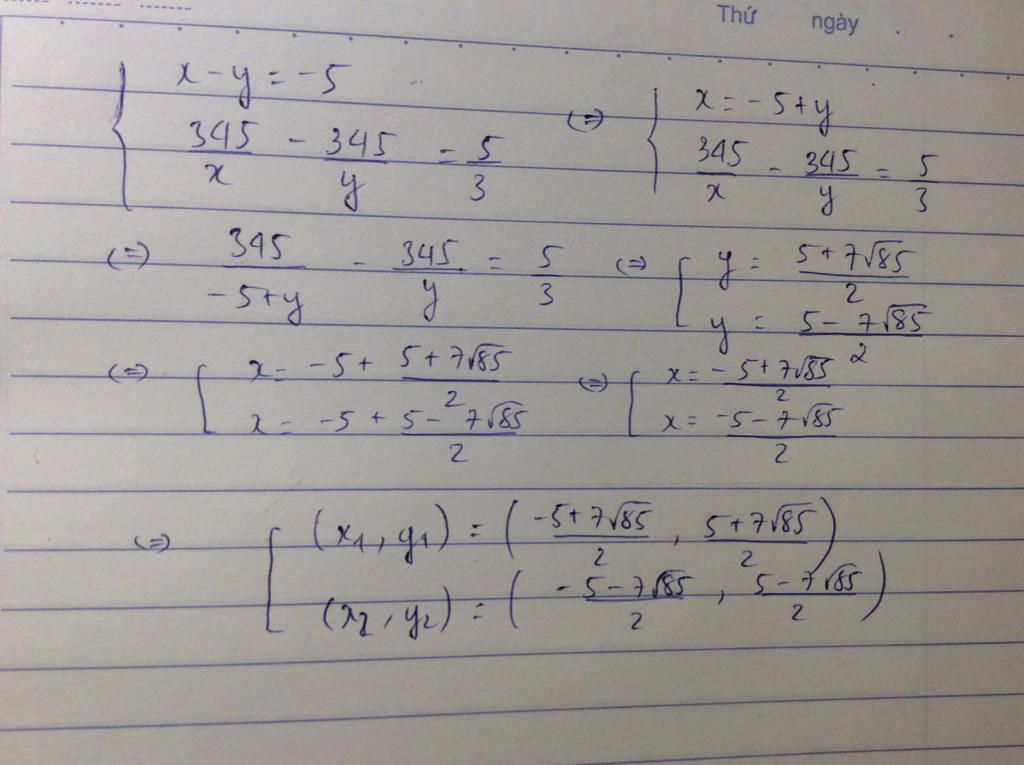 Thứ ngày . .
{ x - y = -5
345/x - 345/y = 5/3 (=) { x = -5 + y
345/x - 345/y = 5/3
(=) 345/(-5+y) - 345/y = 5/3 (=) [ y = (5+7√85)/2
y = (5-7√85)/2
(=) [ x = -5 + (5+7√85)/2
x = -5 + (5-7√85)/2 (=) [ x = (-5+7√85)/2
x = (-5-7√85)/2
(=) [ (x₁, y₁) = ((-5+7√85)/2, (5+7√85)/2)
(x₂, y₂) = ((-5-7√85)/2, (5-7√85)/2)